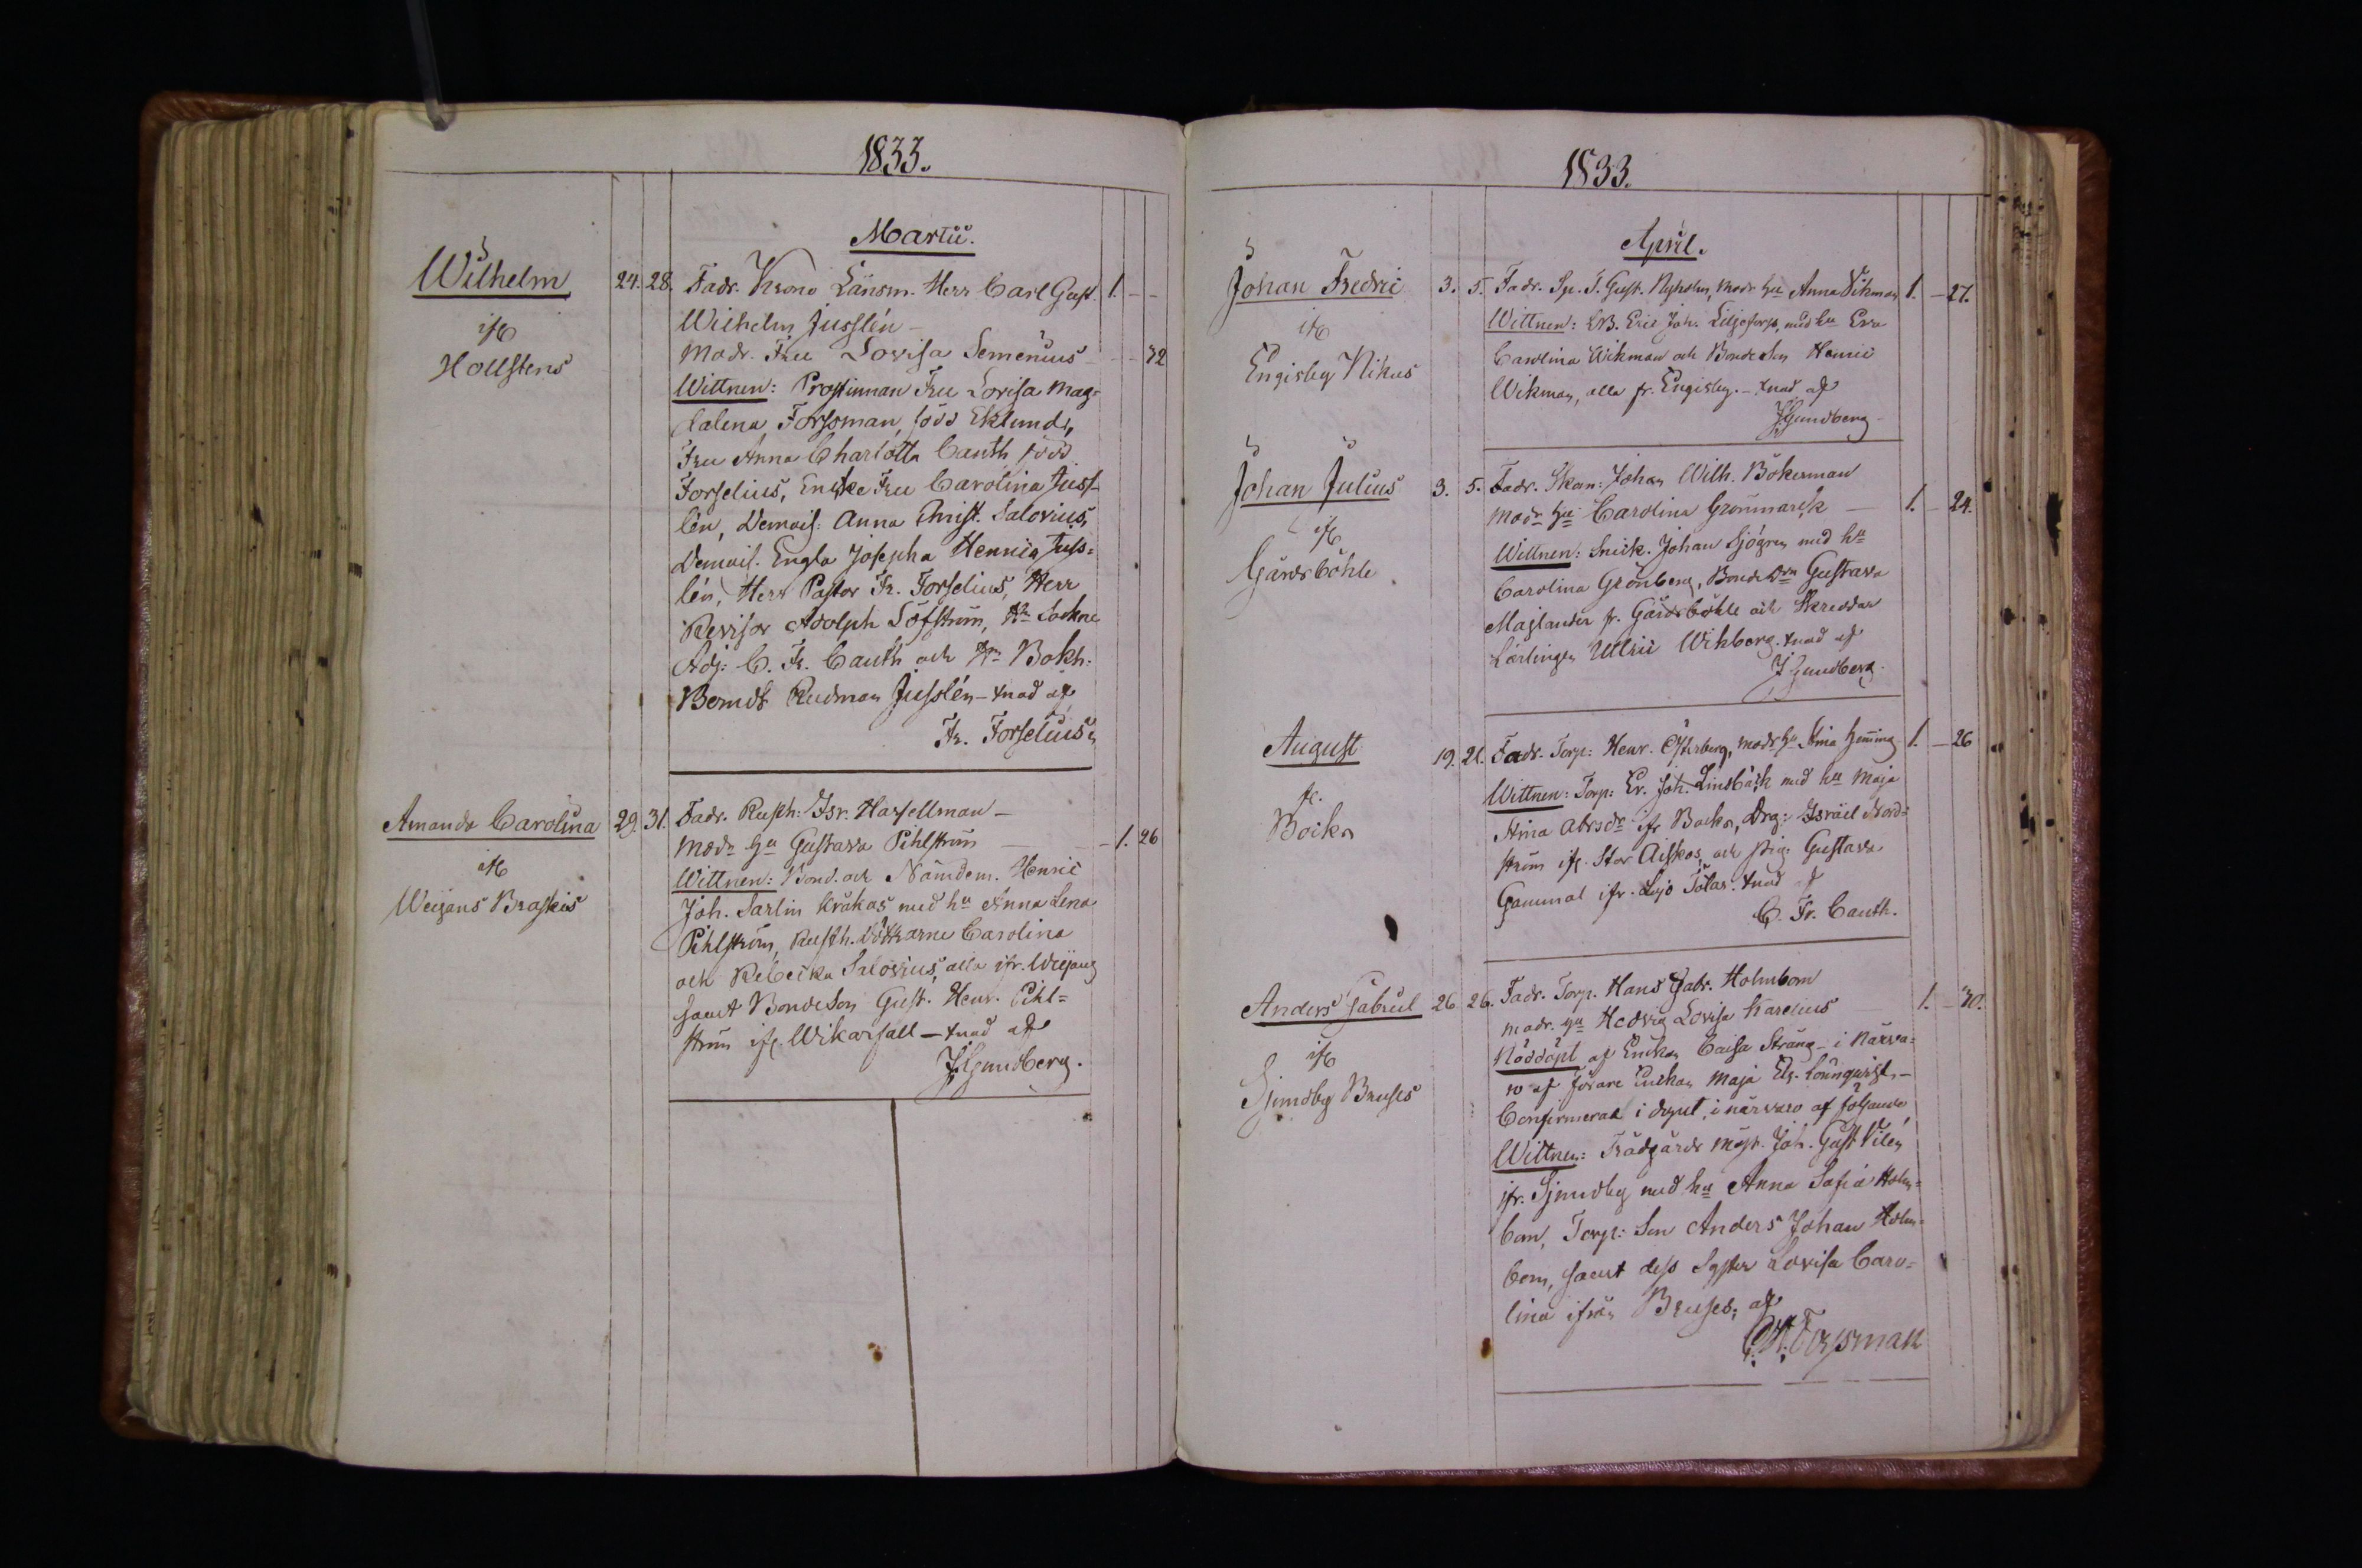 1833.
Martii.
Wilhelm 24. 28. Fadr. Krono Länsm. Herr Carl Gust 1. - -
ifr
Hollstens
Wilhelm Jusslén -
Modr. Fru Lovisa Semenius - - - 32
Wittnen: Prostinnan Fru Lovisa Mag=
dalena Forssman, född Eklund,
Fru Anna Charlotta Cauth född
Forselius, Encke Fru Carolina Juss-
lén, Demois: Anna Christ. Salovius,
Demois. Engla Josepha Hennig Juss=
lén, Herr Pastor Fr. Forselius, Herr
Revisor Adolph Löfström, Hr Sockne
Adj: C. Fr. Cauth och Hr Bokh:
Berndt Rudman Jusslén - tnad af
Fr. Forselius
Amanda Carolina 29. 31. Fadr. Rusth: Isr. Hassellman -
ifr
Weijans Braskis
Modr Hu Gustava Pihlström - - 1. 26
Wittnen: Bond. och Nämdem. Henric
Joh. Sarlin Kråkas med hu Anna Lena
Pihlström, Rusth. Döttrarne Carolina
och Rebecka Salovius, alla ifr. Weijans
samt BondeSon Gust. Henr. Pihl=
ström ifr Wikarfall - tnad af
J. Gundberg.
1833.
April.
Johan Fredric 3. 5. Fadr. Sp. J. Gust. Nyholm, Modr hu Anna Vikman 1. - 27.
ifr
Engisby Nikus
Wittnen: LB. Eric Joh. Liljefors, med hu Eva
Carolina Wikman och BondeSon Henric
Wikman, alla fr. Engisby. - tnad af
J. Gundberg
Johan Julius 3. 5. Fadr. Skom: Johan Wilh. Bökerman
ifr
Gärdsböhle
Modr Hu Carolina Grönmarck - 1. - 24.
Wittnen: Snick. Johan Sjögren med hu
Carolina Grönberg, BondeDrn Gustava
Majlander fr. Gärdsböhle och Skreddar
Lärlingen Ulric Wikberg. tnad af
J. Gundberg.
August 19. 21. Fadr. Torp: Henr. Österberg, Modr hu Stina Henning 1. - 26
fr.
Böcka
Wittnen: Torp: Er. Joh. Lindbäck med hu Maja
Stina Abrsdr ifr Backa, Drg: Israël Nord=
ström ifr. Stor Aiskos, och pig. Gustava
Gammal ifr. Lojo Tötar. tnad af
C. Fr. Cauth.
Anders Gabriel 26 26. Fadr. Torp. Hans Gabr. Holmbom
ifr
Sjundby Bruses
Modr. Hu Hedvig Lovisa Karelius 1. - 30.
Nöddöpt af Enckan Caisa Sträng - i närva=
ro af förare Enckan Maja Els. Lönnqvist. -
Confirmerad i dopet, i närvaro af följande
Wittnen: Trädgårds Mäst. Joh. Gust Vilén
ifr. Sjundby med hu Anna Sofia Holm=
bom, Torp: Son Anders Johan Holm=
bom, samt dess Syster Lovisa Caro=
lina ifrån Bruses; af
C. H. Forssman